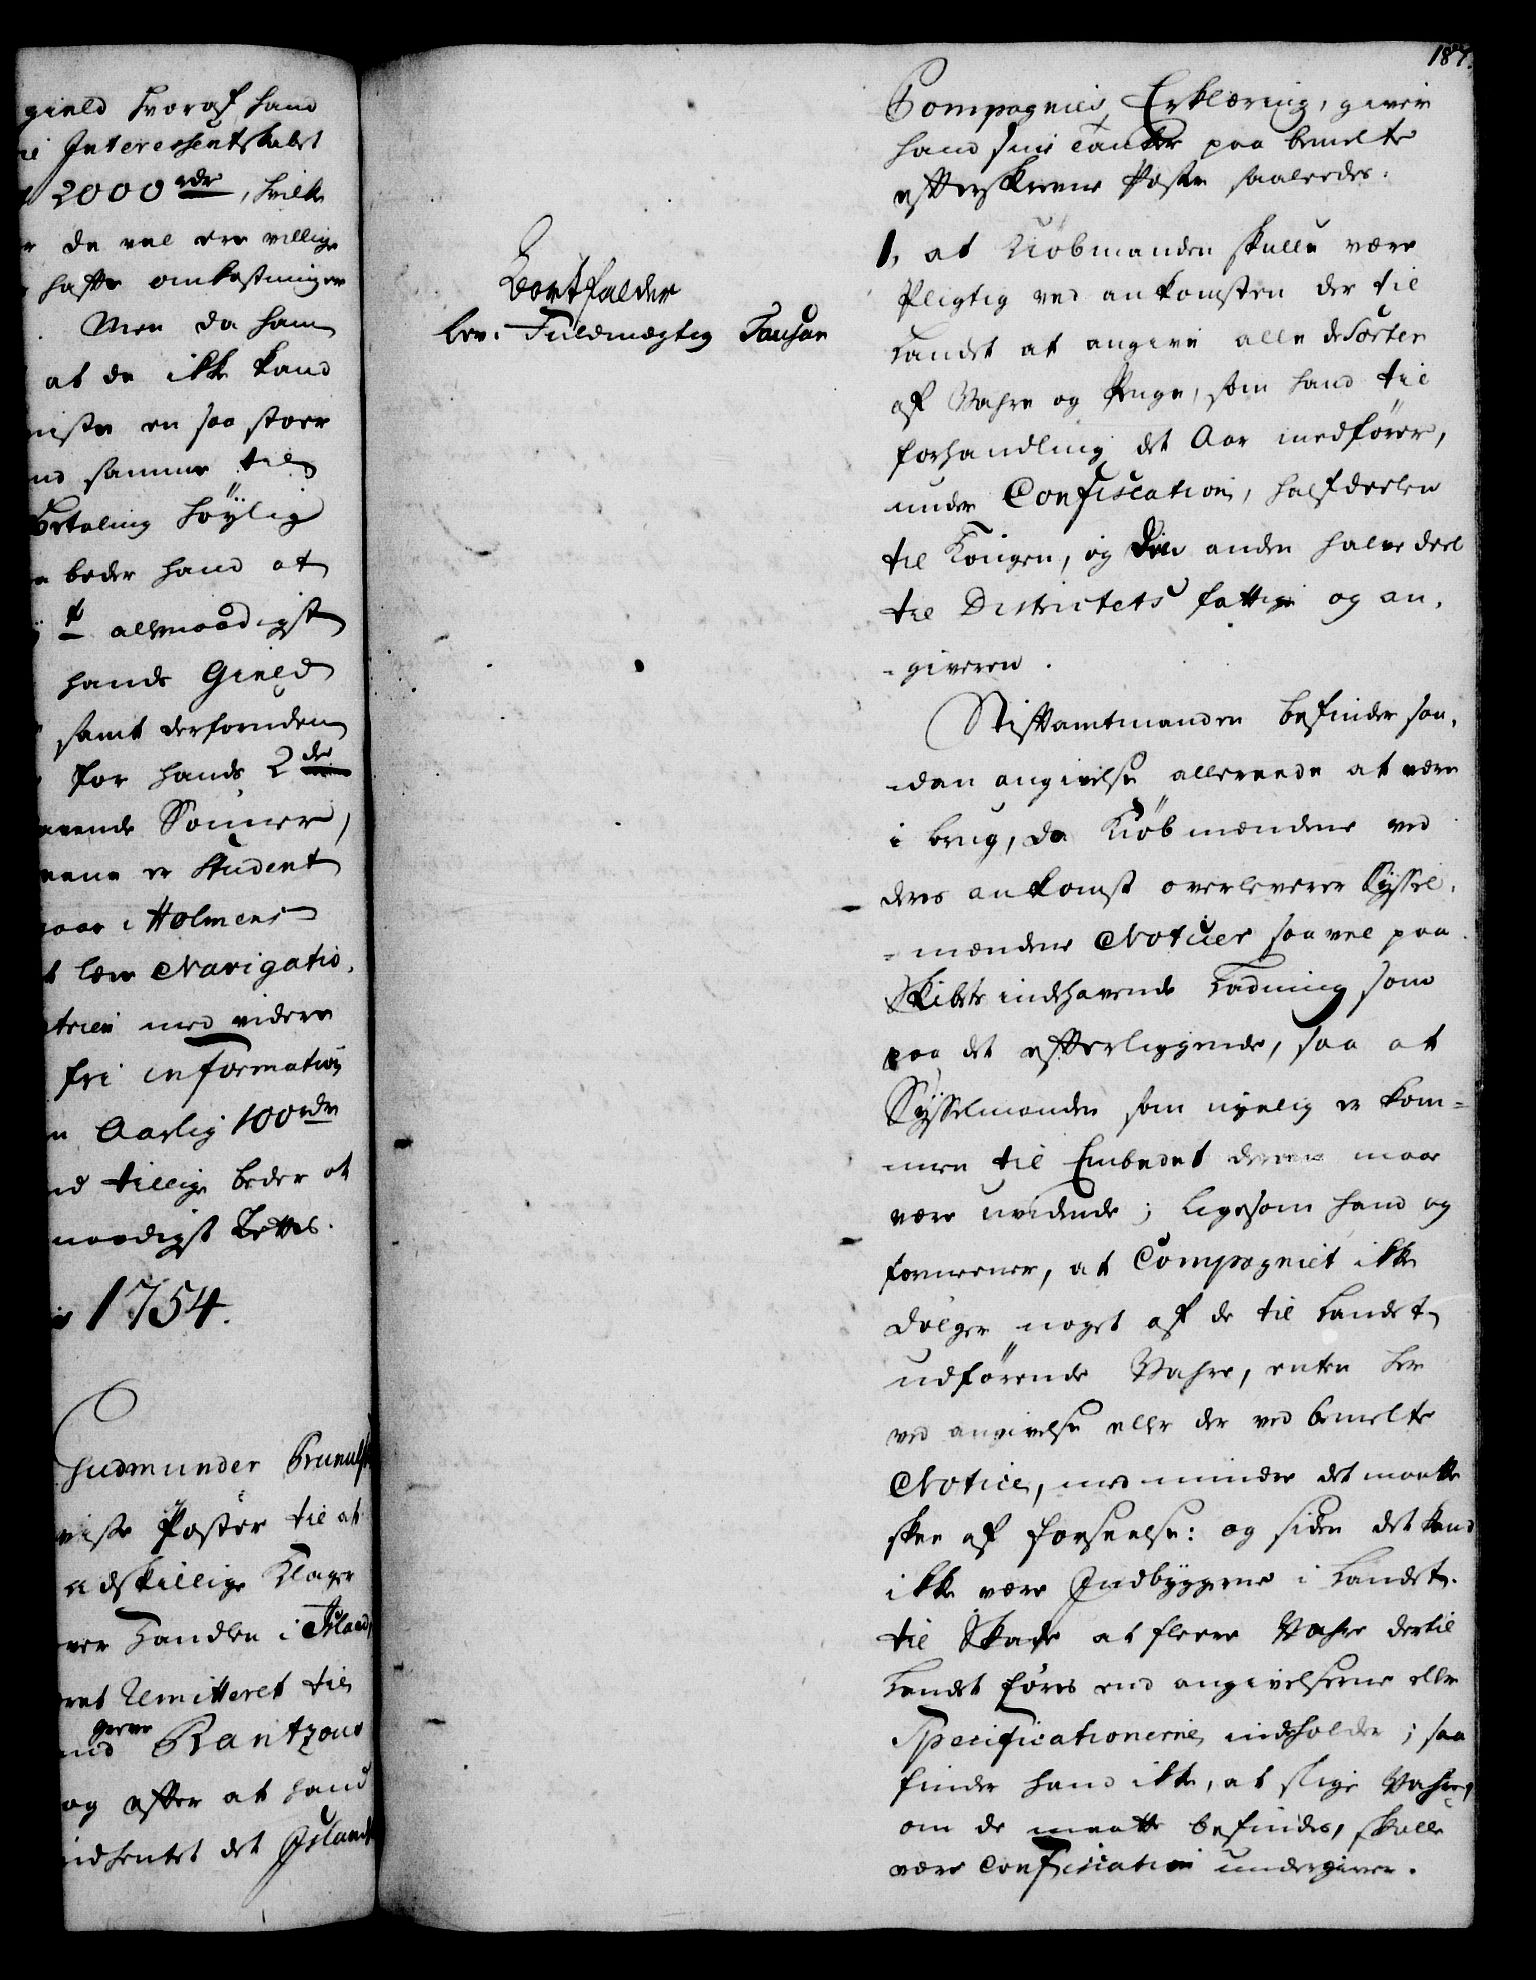 gield hvoraf hand
Interessentskabet
2000 rdr, hvilke
de vel ere villige
hafte omkostninger
Men da ham
at de ikke kand
miste en saa stoer
samme til
Betaling höylig
beder hand at
t allernaadigst
hands Gield
samt derforuden
for hands 2de
havende Sönner,
eene er Student
gaar i Holmens
lære Navigatio,
trien med videre
fri information
Aarlig 100 rdr
tillige beder at
naadigst Lettes.
1754.
Gudmunder Brunulfs
visse Poster til at
adskillige Klager
over Handlen i Island,
Remitteret til
greve
Rantzow
og efter at hand
indhentet det Islands
187.
Compagnies Erklæring, giver
hand sine Tanker paa bemelte
efterskrevne Poster saaledes.
Bortfalder
lev. Fuldmægtig Fansøe
1, at Kiöbmanden skulle være
Pligtig ved ankomsten der til
Landet at angive alle de Sorter
af Vahre og Penge, som hand til
forhandling det Aar medförer,
under Confiscation, halfdeelen
til Kongen, og Den anden halve deel
til Districtets fattige og an,
-giveren.
Stiftamtmanden befinder saa,
-dan angivelse allereede at være
i brug, da Kiöbmændene ved
deres ankomst overleverer Syssel,
-mændene Noticer saavel paa
Skibets indehavende Ladning som
paa det efterliggende, saa at
Sysselmanden som nyelig er kom=
men til Embedet derom maae
være uvidende; ligesom hand og
formeener, at Compagniet ikke
dölger noget af de til Landet
udförende Vahre, enten her
ved angivelse eller der ved bemelte
Notice, med mindre det maatte
skee af forseelse: og siden det kand
ikke være Indbyggerne i Landet
til Skade at fleere Vahre dertil
Landet föres end angivelserne eller
Specificationerne indeholder; saa
finder hand ikke, at slige Vahre,
om de maatte befindes, skulle
være Confiscation undergiven.